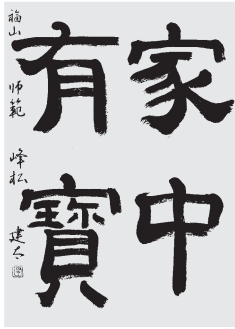 家中
有寶
福山 師範 峰松 建太